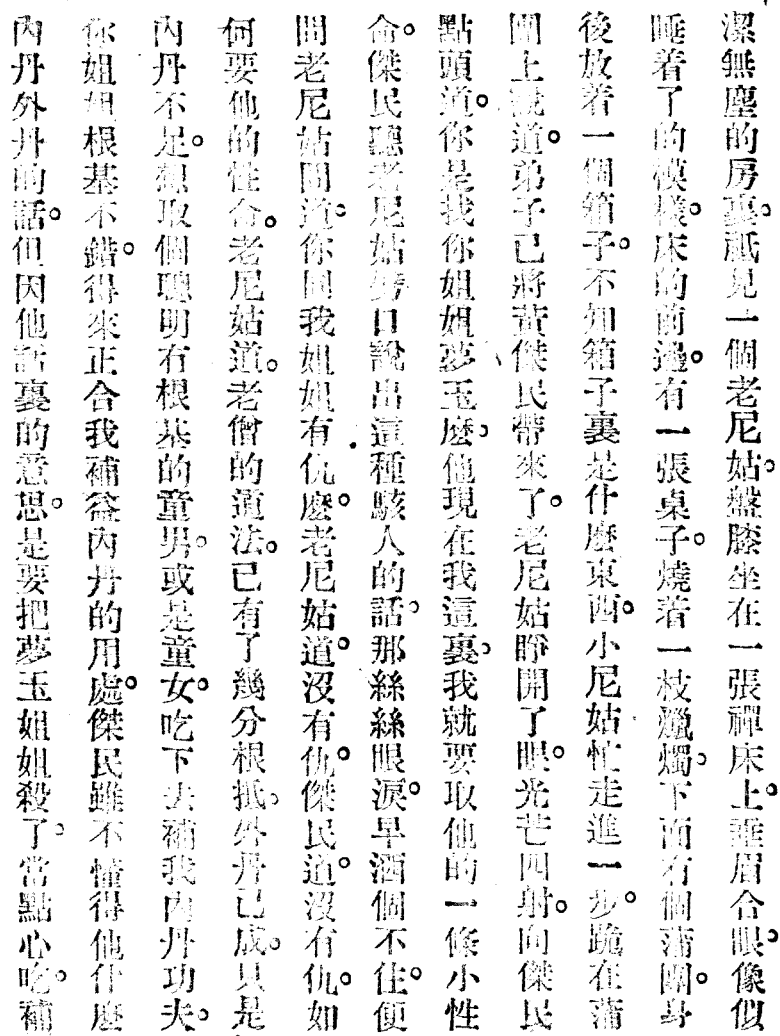 潔無塵的房裏。祗見一個老尼姑。盤膝坐在一張禪床上。垂眉合眼。像似
睡着了的模樣。床的前邊。有一張桌子。燒着一枝蠟燭。下面有個蒲團。身
後放着一個箱子。不知箱子裏是什麼東西。小尼姑忙走進一步。跪在蒲
團上說道。弟子已將黃傑民帶來了。老尼姑睜開了眼。光芒四射。向傑民
點頭道。你是找你姐姐夢玉麼。他現在我這裏。我就要取他的一條小性
命。傑民聽老尼姑嘴口說出這種駭人的話。那絲絲眼淚。早洒個不住。便
問老尼姑問道。你同我姐姐有仇麼。老尼姑道。沒有仇。傑民道。沒有仇。如
何要他的性命。老尼姑道。老僧的道法。已有了幾分根抵。外丹已成。只是
內丹不足。想取個聰明有根基的童男。或是童女。吃下去補我內丹功夫。
你姐姐根基不錯。得來正合我補益內丹的用處。傑民雖不懂得他什麼
內丹外丹的話。但因他話裏的意思。是要把夢玉姐姐殺了。當點心吃。補